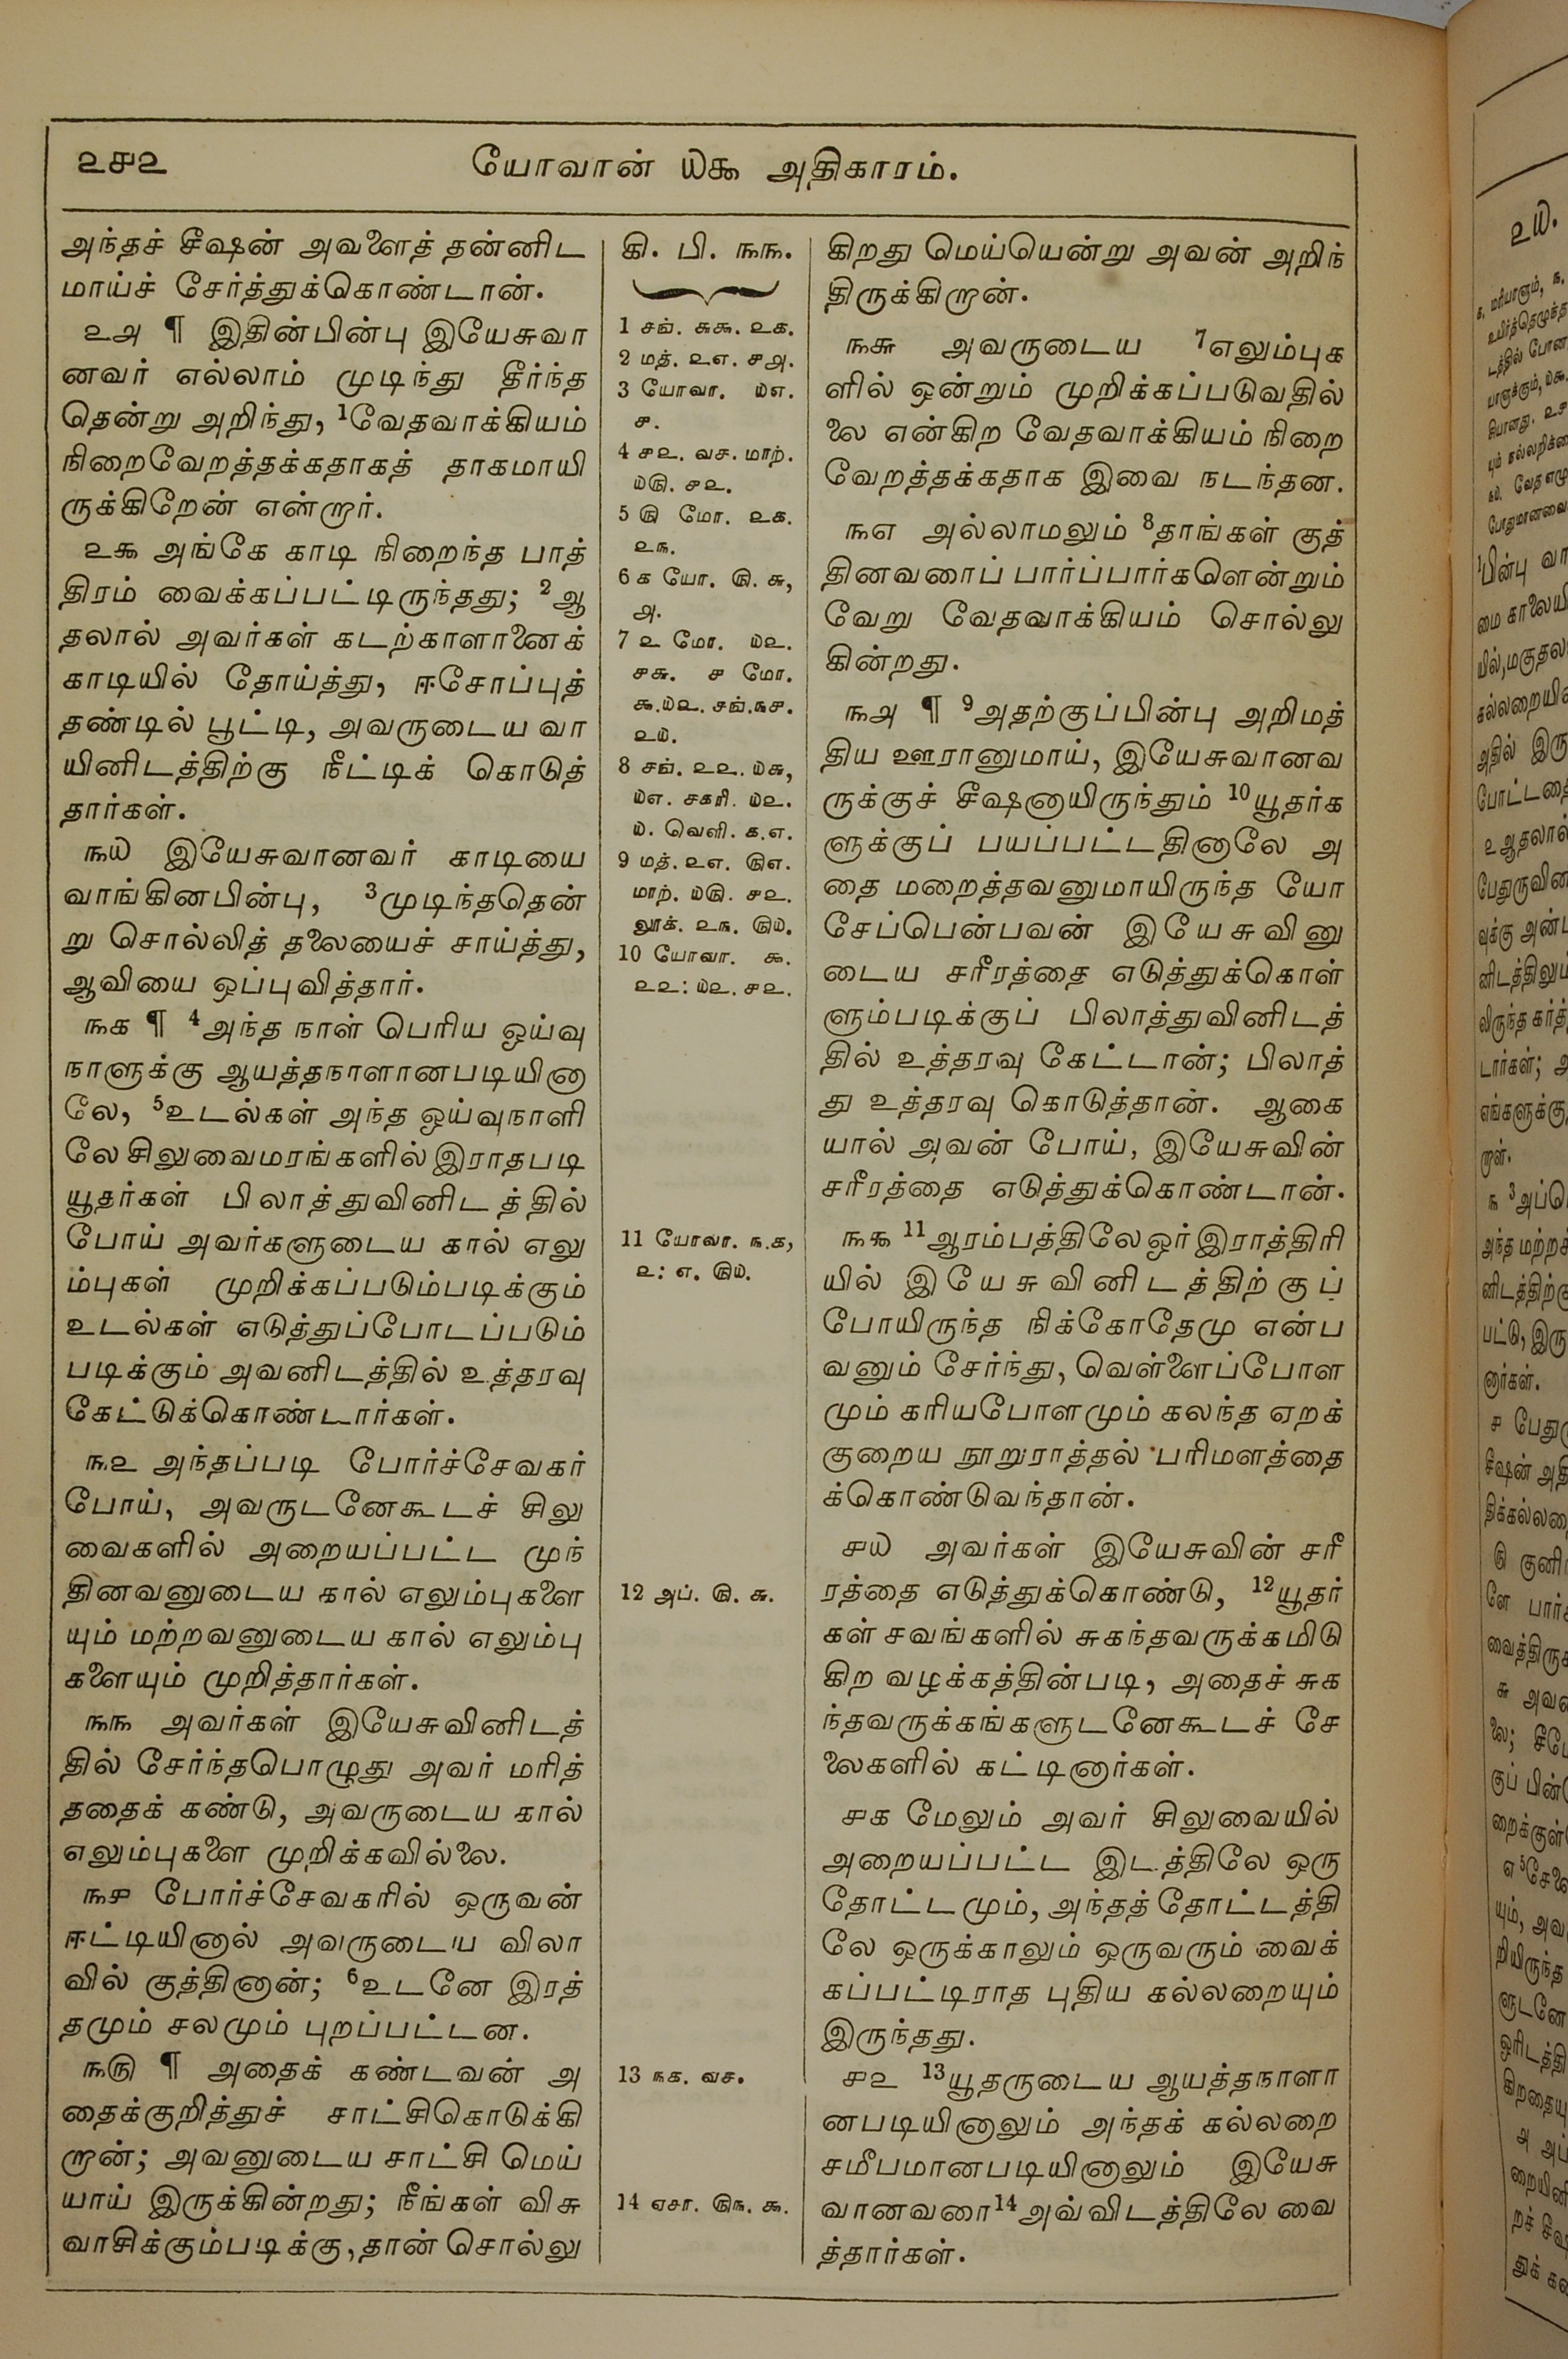 ௨௪௨ யோவான் ௰௯ அதிகாரம்.
அந்தச் சீஷன் அவளைத் தன்னிட
மாய்ச் சேர்த்துக்கொண்டான்.
௨௮ ¶ இதின்பின்பு இயேசுவா
னவர் எல்லாம் முடிந்து தீர்ந்த
தென்று அறிந்து, 1வேதவாக்கியம்
நிறைவேறத்தக்கதாகத் தாகமாயி
ருக்கிறேன் என்றார்.
௨௯ அங்கே காடி நிறைந்த பாத்
திரம் வைக்கப்பட்டிருந்தது; 2ஆ
தலால் அவர்கள் கடற்காளானைக்
காடியில் தோய்த்து, ஈசோப்புத்
தண்டில் பூட்டி, அவருடைய வா
யினிடத்திற்கு நீட்டிக் கொடுத்
தார்கள்.
௩௰ இயேசுவானவர் காடியை
வாங்கினபின்பு, 3முடிந்ததென்
று சொல்லித் தலையைச் சாய்த்து,
ஆவியை ஒப்புவித்தார்.
௩௧ ¶ 4அந்த நாள் பெரிய ஓய்வு
நாளுக்கு ஆயத்தநாளானபடியினா
லே, 5உடல்கள் அந்த ஓய்வுநாளி
லே சிலுவைமரங்களில் இராதபடி
யூதர்கள் பிலாத்துவினிடத்தில்
போய் அவர்களுடைய கால் எலு
ம்புகள் முறிக்கப்படும்படிக்கும்
உடல்கள் எடுத்துப்போடப்படும்
படிக்கும் அவனிடத்தில் உத்தரவு
கேட்டுக்கொண்டார்கள்.
௩௨ அந்தப்படி போர்ச்சேவகர்
போய், அவருடனேகூடச் சிலு
வைகளில் அறையப்பட்ட முந்
தினவனுடைய கால் எலும்புகளை
யும் மற்றவனுடைய கால் எலும்பு
களையும் முறித்தார்கள்.
௩௩ அவர்கள் இயேசுவினிடத்
தில் சேர்ந்தபொழுது அவர் மரித்
ததைக் கண்டு, அவருடைய கால்
எலும்புகளை முறிக்கவில்லை.
௩௪ போர்ச்சேவகரில் ஒருவன்
ஈட்டியினால் அவருடைய விலா
வில் குத்தினான்; 6உடனே இரத்
தமும் சலமும் புறப்பட்டன.
௩௫ ¶ அதைக் கண்டவன் அ
தைக்குறித்துச் சாட்சிகொடுக்கி
றான்; அவனுடைய சாட்சி மெய்
யாய் இருக்கின்றது; நீங்கள் விசு
வாசிக்கும்படிக்கு, தான் சொல்லு
கி. பி. ௩௩.
1 சங். ௬௯. ௨௧.
2 மத். ௨௭. ௪௮.
3 யோவா. ௰௭.
௪.
4 ௪௨. வச. மாற்.
௰௫. ௪௨.
5 ௫ மோ. ௨௧.
௨௩.
6 ௧ யோ. ௫. ௬,
௮.
7 ௨ மோ. ௰௨.
௪௬. ௪ மோ.
௯.௰௨. சங்.௩௪.
௨௰.
8 சங். ௨௨. ௰௬,
௰௭. சகரி. ௰௨.
௰. வெளி. ௧.௭.
9 மத். ௨௭. ௫௭.
மாற். ௰௫. ௪௨.
லூக். ௨௩. ௫௰.
10 யோவா. ௯.
௨௨: ௰௨. ௪௨.
11 யோவா. ௩.௧,
௨: ௭. ௫௰.
12 அப். ௫. ௬.
13 ௩௧. வச.
14 ஏசா. ௫௩. ௯.
கிறது மெய்யென்று அவன் அறிந்
திருக்கிறான்.
௩௬ அவருடைய 7எலும்புக
ளில் ஒன்றும் முறிக்கப்படுவதில்
லை என்கிற வேதவாக்கியம் நிறை
வேறத்தக்கதாக இவை நடந்தன.
௩௭ அல்லாமலும் 8தாங்கள் குத்
தினவரைப் பார்ப்பார்களென்றும்
வேறு வேதவாக்கியம் சொல்லு
கின்றது.
௩௮ ¶ 9அதற்குப்பின்பு அறிமத்
திய ஊரானுமாய், இயேசுவானவ
ருக்குச் சீஷனாயிருந்தும் 10யூதர்க
ளுக்குப் பயப்பட்டதினாலே அ
தை மறைத்தவனுமாயிருந்த யோ
சேப்பென்பவன் இயேசுவினு
டைய சரீரத்தை எடுத்துக்கொள்
ளும்படிக்குப் பிலாத்துவினிடத்
தில் உத்தரவு கேட்டான்; பிலாத்
து உத்தரவு கொடுத்தான். ஆகை
யால் அவன் போய், இயேசுவின்
சரீரத்தை எடுத்துக்கொண்டான்.
௩௯ 11ஆரம்பத்திலே ஓர் இராத்திரி
யில் இயேசுவினிடத்திற்குப்
போயிருந்த நிக்கோதேமு என்ப
வனும் சேர்ந்து, வெள்ளைப்போள
மும் கரியபோளமும் கலந்த ஏறக்
குறைய நூறுராத்தல் பரிமளத்தை
க்கொண்டுவந்தான்.
௪௰ அவர்கள் இயேசுவின் சரீ
ரத்தை எடுத்துக்கொண்டு, 12யூதர்
கள் சவங்களில் சுகந்தவருக்கமிடு
கிற வழக்கத்தின்படி, அதைச் சுக
ந்தவருக்கங்களுடனேகூடச் சே
லைகளில் கட்டினார்கள்.
௪௧ மேலும் அவர் சிலுவையில்
அறையப்பட்ட இடத்திலே ஒரு
தோட்டமும், அந்தத் தோட்டத்தி
லே ஒருக்காலும் ஒருவரும் வைக்
கப்பட்டிராத புதிய கல்லறையும்
இருந்தது.
௪௨ 13யூதருடைய ஆயத்தநாளா
னபடியினாலும் அந்தக் கல்லறை
சமீபமானபடியினாலும் இயேசு
வானவரை 14அவ்விடத்திலே வை
த்தார்கள்.